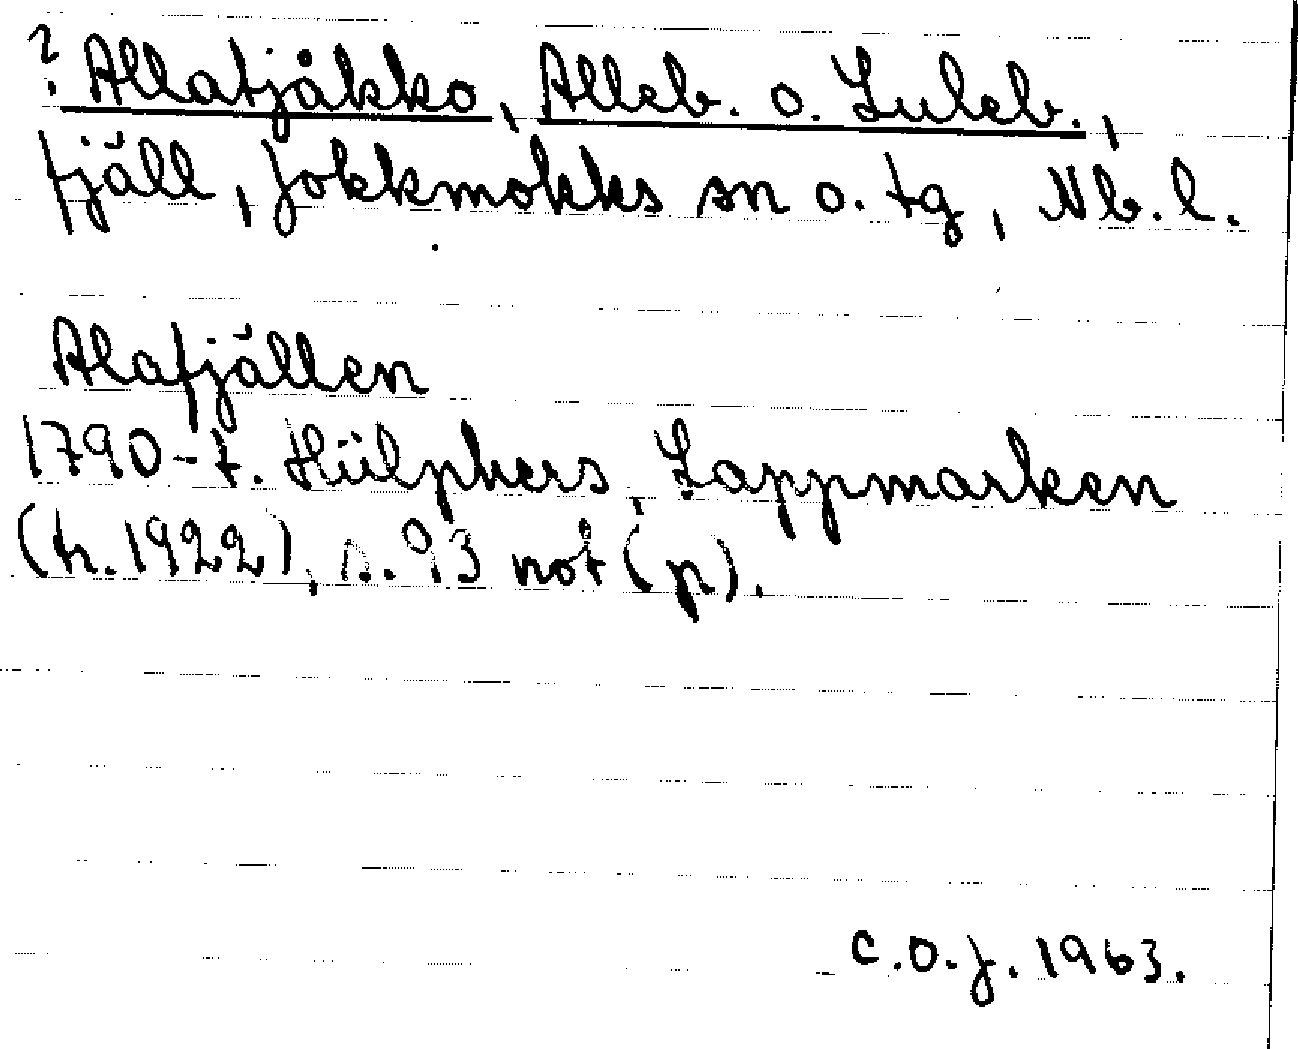 ? Allatjåkko, Alleb. o. Luleb.,
fjäll, Jokkmokks sn o. tg, Nb. l.
Alafjällen
1790-t. Hülphers, Lappmarken
(tr. 1922), s. 93 not (p).
C.O.J. 1963.